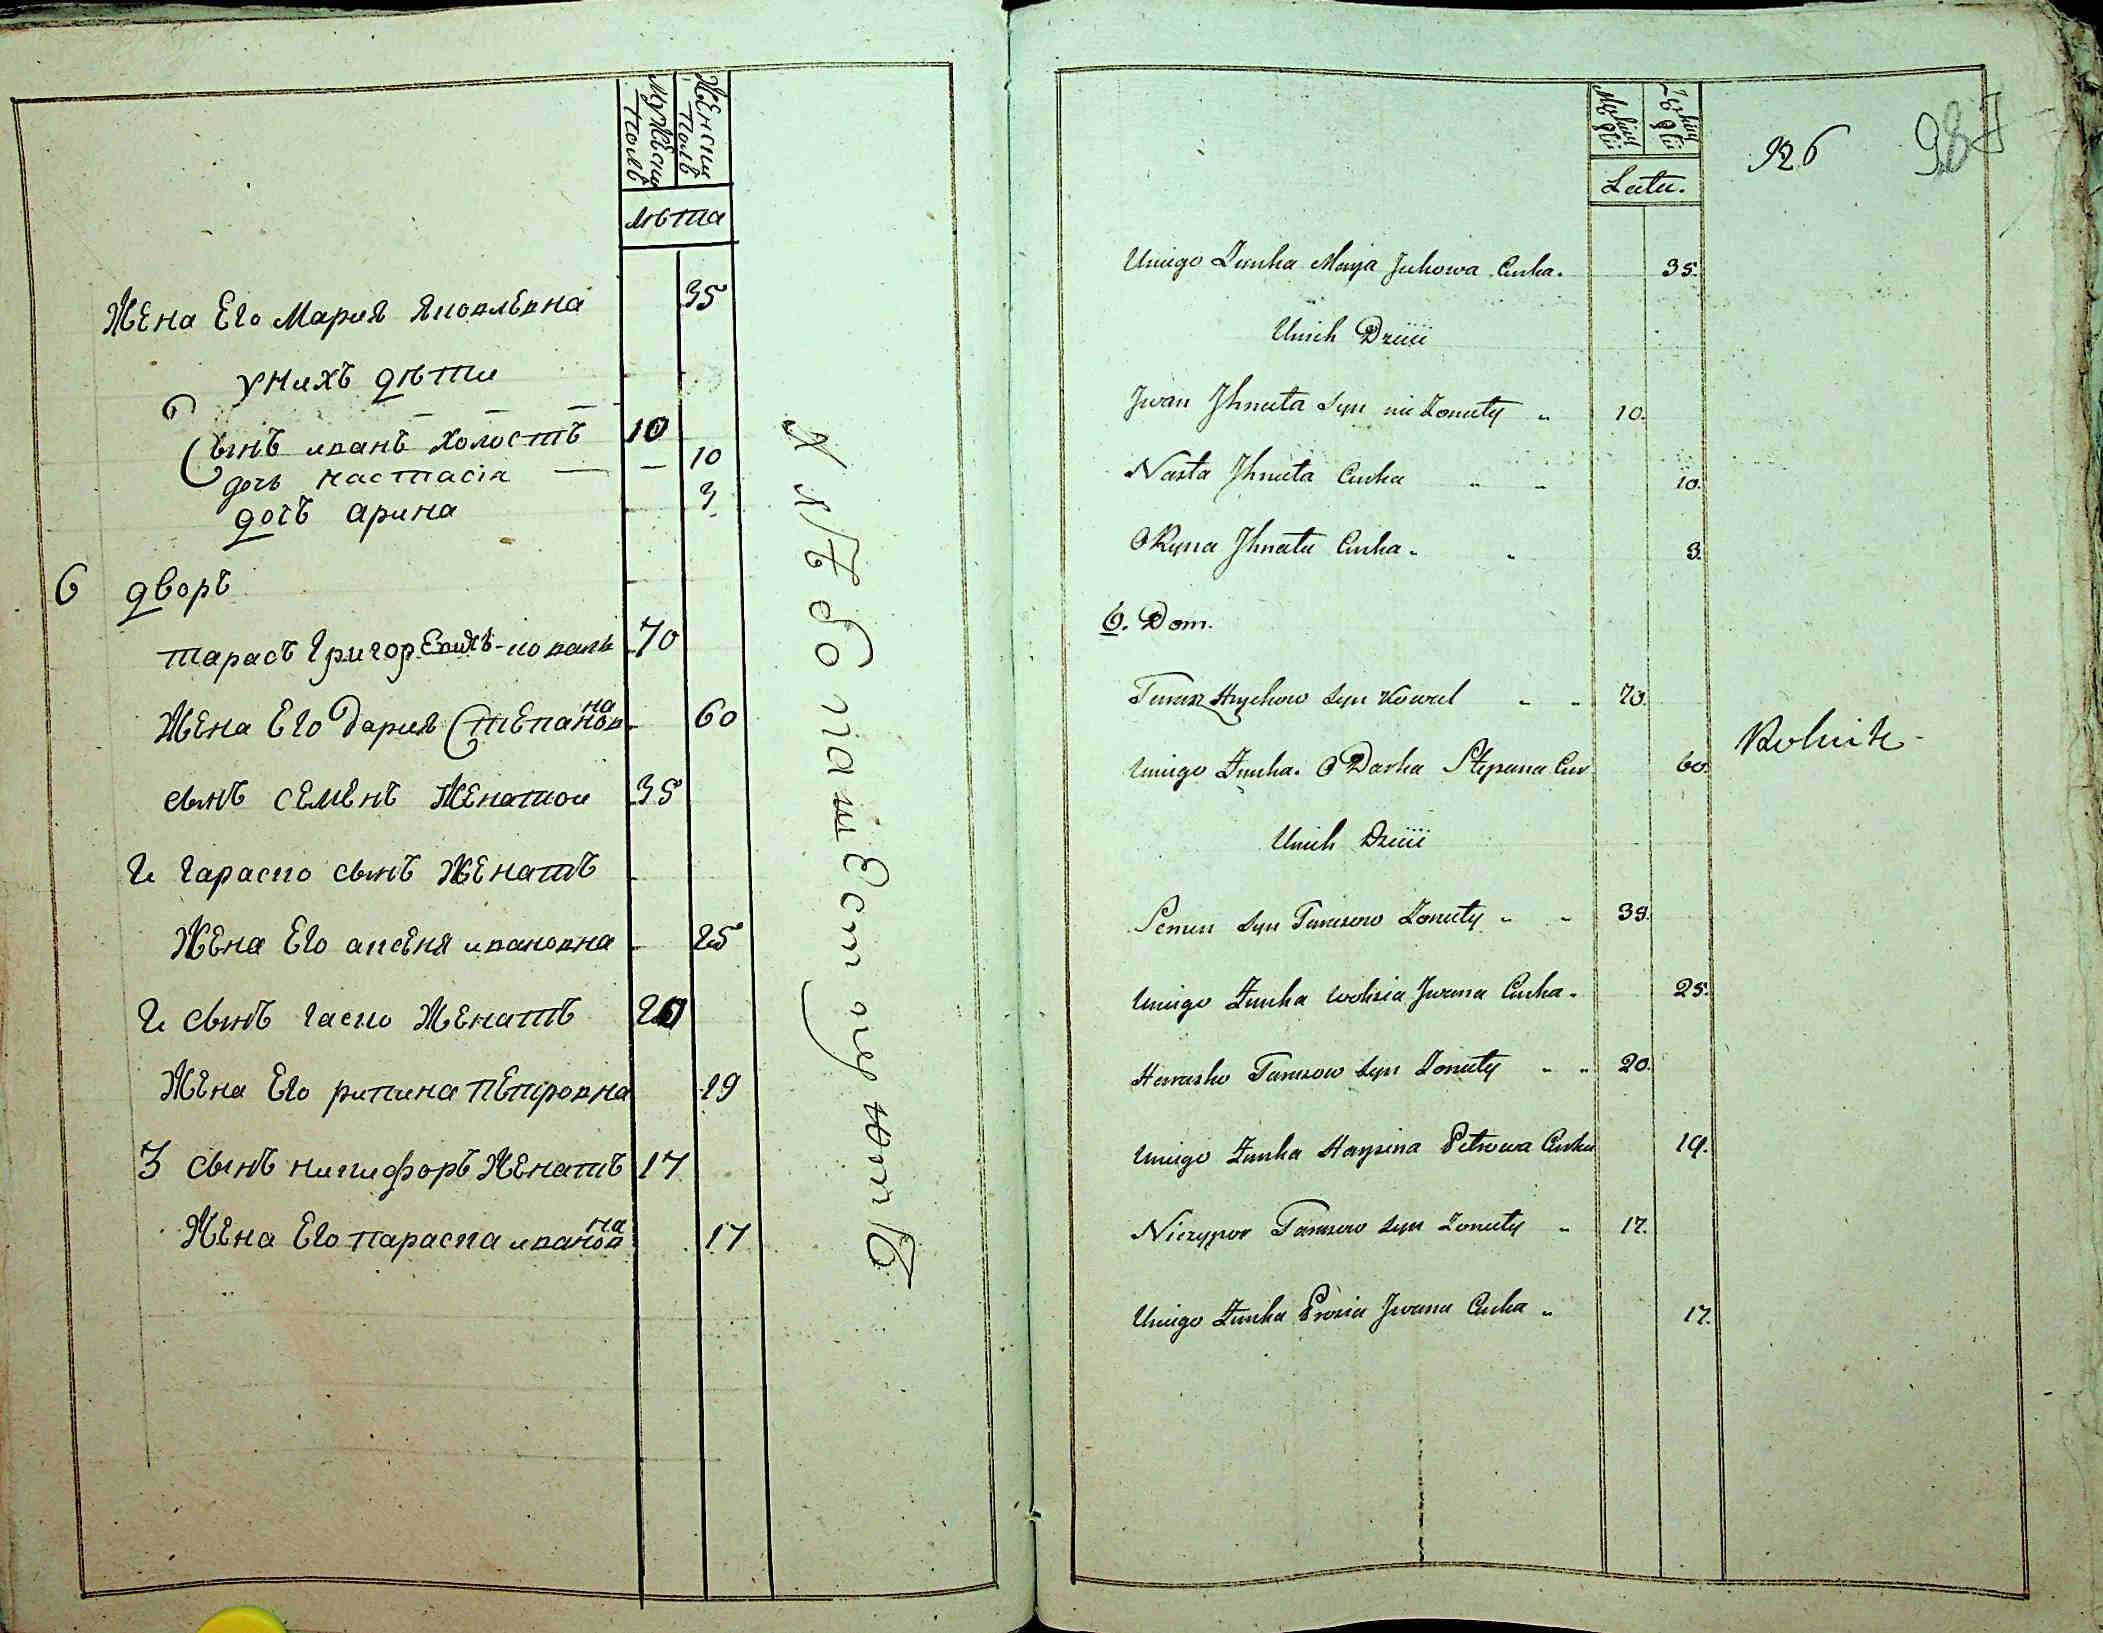 Женски Полъ
Мужески Полъ
лѣта
Жена Его Мария Яковлевна 35
у нихъ дѣти
Сынъ иванъ холостъ 10
дочь настасія 10
дочъ арина 3
6 дворъ
тарасъ Григор Евичъ коваль 70
Жена Его дария Степановна 60
сынъ семенъ женатои 35
2 гараско сынъ женатъ
Жена Его аксеня ивановна 25
2 сынъ гаско женатъ 20
Жена Его рипина петровна 19
3 сынъ никифоръ женатъ 17
Жена Его параска ивановна 17
Хлѣбопашествуютъ
Latu.
926
98
Uniego Żunka Marja Jukowa Curka. 35.
Unich Dzieci
Jwan Jhnata Syn nie Żonuty " 10.
Nasta Jhnata Curka " " 10.
ORyna Jhnata Curka " " 3.
6. Dom.
Taras Hrychow Syn Kowal " " 70.
Uniego Żunka. ODarka Stepana Cur 60.
Rolnik
Unich Dzieci
Semen Syn Tarasow Żonuty " " 35.
Uniego Żunka Jwana Curka. 25.
Harasko Tarasow Syn Żonuty " " 20.
Uniego Żunka Haypina Petrowa Curka 19.
Niczypor Tarasow Syn Żonuty " 17.
Uniego Żunka Prosia Jwana Curka " 17.